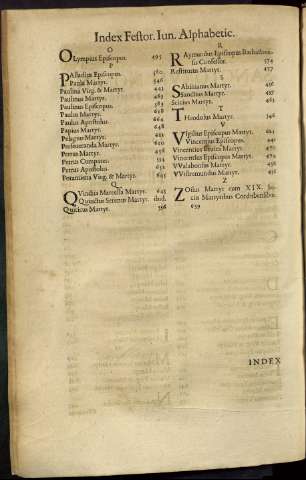 Index Festor. Iun. Alphabetic.
O
OLympius Episcopus. 495
P
PAlladius Episcopus. 580.
Martyr. 546
Paulina Virg. & Martyr. 443
Paulinus Martyr. 463
Paulinus Episcopus. 583
Paulus Martyr. 538
Paulus Apostolus. 664
Papius Martyr. 648
Pelagius Martyr. 440
Martyr. 660
Petrus Martyr. 456
Petrus Martyr.
Petrus Apostolus. 652
Virg. & Martyr. 645
Q
QVintilis Marcella Martyr. 645
Martyr. ibid.
Quiricus Martyr. 596
R
RAymundus Episcopus
& Confessor. 574
Restitutus Martyr. 477
S
SAbinianus Martyr. 456
Sanctius Martyr. 457
Martyr. 463
T
THeodulus Martyr. 546
V
VIgilius Episcopus Martyr. 624
Vincentius Episcopus. 440
Vincentius Martyr. 470
Vincentius Episcopus Martyr. 474
VValabonsus Martyr. 456
VVistremundus Martyr. 456
Z
ZOilus Martyr cum XIX. So-
cijs Martyribus Cordubensibus.
639
INDEX